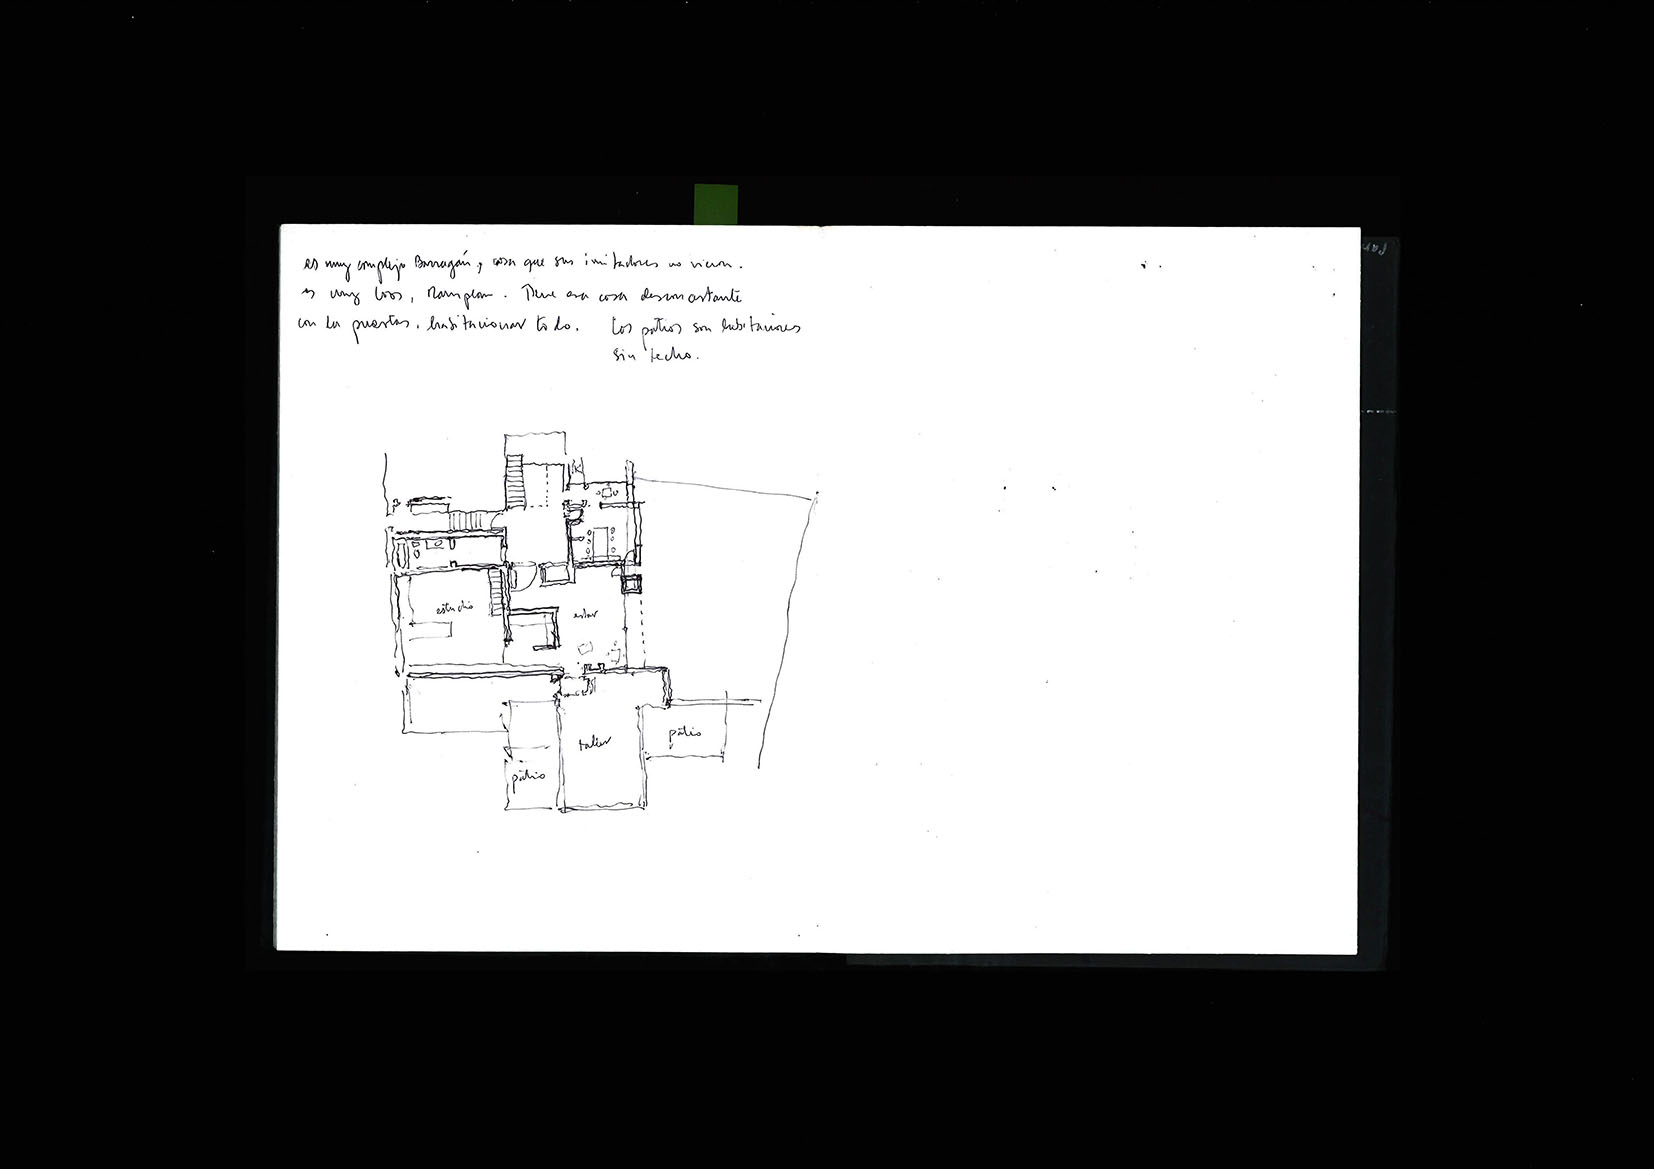 es muy complejo Barragán, cosa que sus imitadores no vieron.
es muy Loos, Raumplan. Tiene esa cosa desconcertante
con las puertas, habitacionar todo. Los patios son habitaciones
sin techo.
estudio
estar
taller
patio
patio